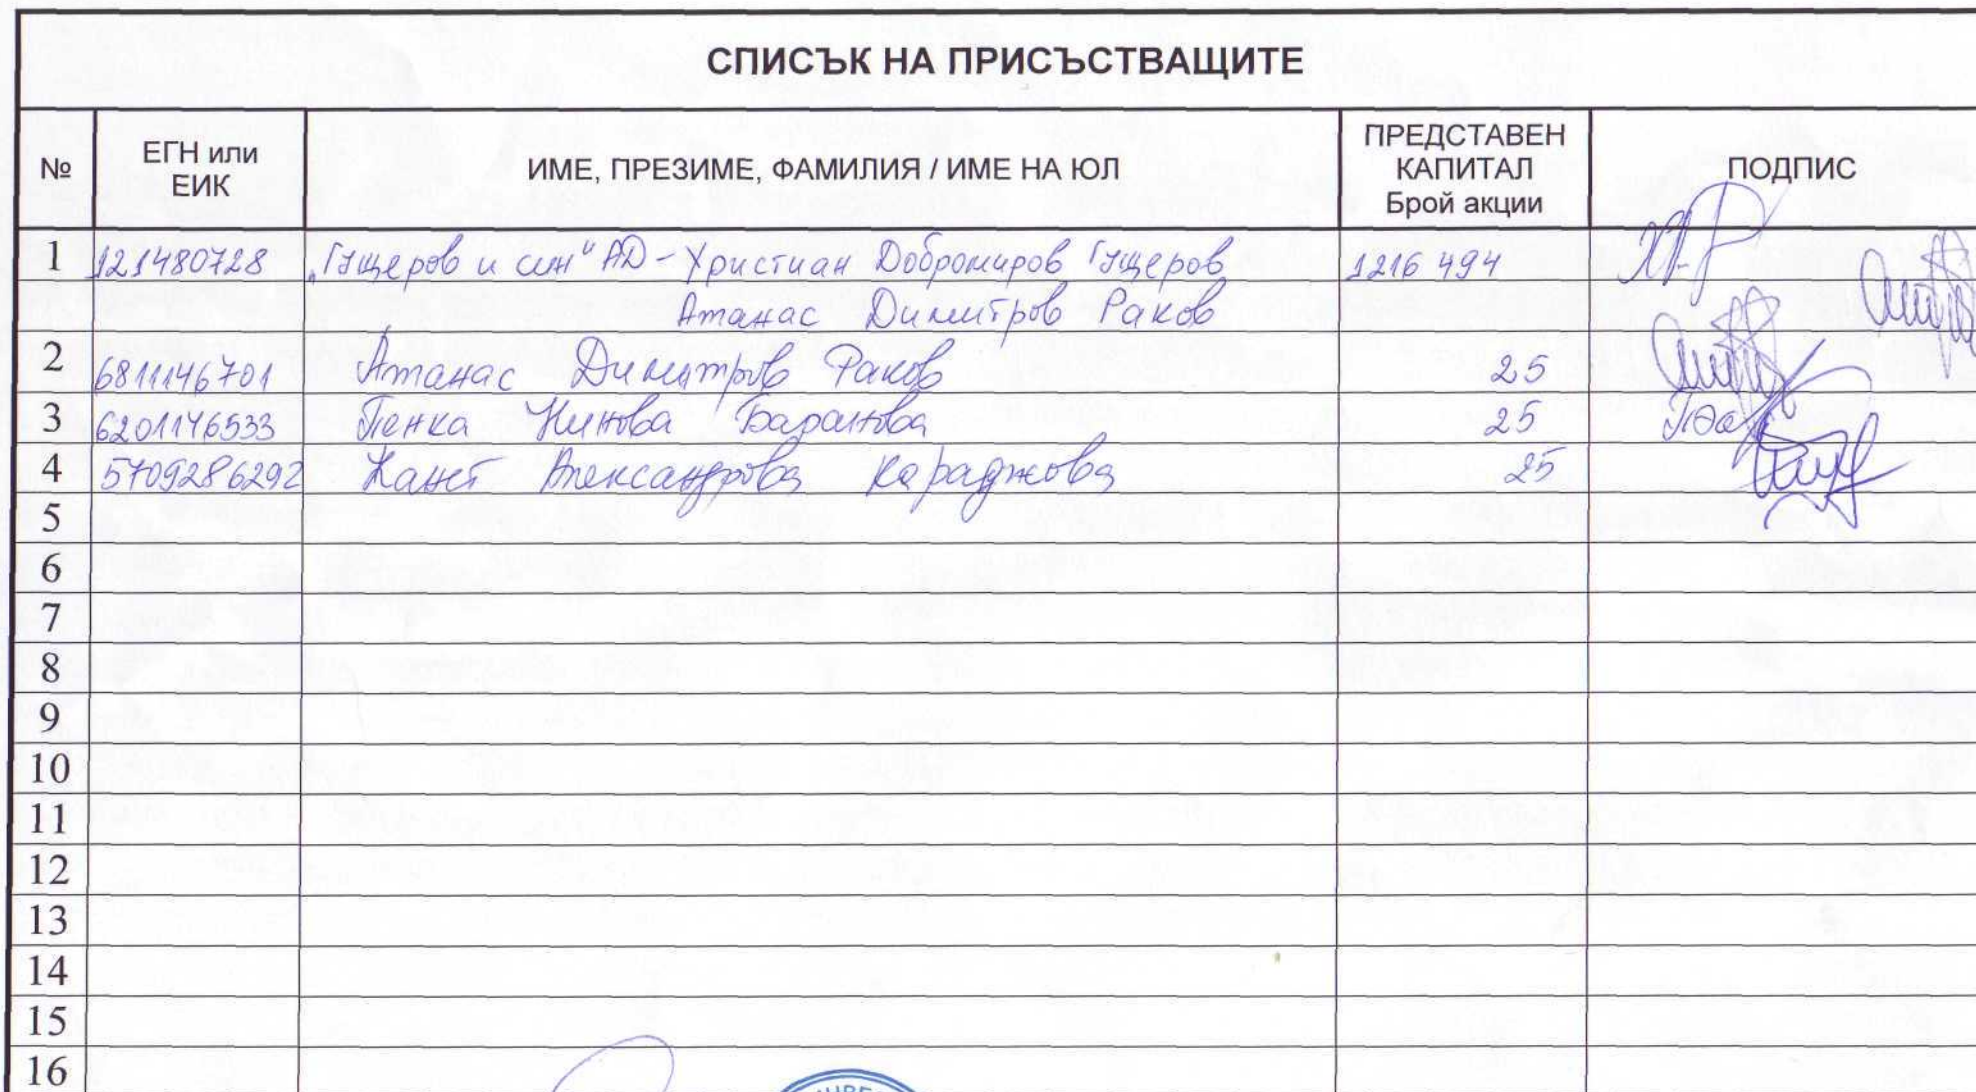 СПИСЪК НА ПРИСЪСТВАЩИТЕ
№ ЕГН или ЕИК ИМЕ, ПРЕЗИМЕ, ФАМИЛИЯ / ИМЕ НА ЮЛ ПРЕДСТАВЕН КАПИТАЛ Брой акции ПОДПИС
1 121480728 „Гущеров и син" АД - Християн Добромиров Гущеров 1216 494
Атанас Димитров Раков
2 6811146701 Атанас Димитров Раков 25
3 6201146533 Пенка Нинова Баранова 25
4 5709286292 Жанет Александрова Караджова 25
5
6
7
8
9
10
11
12
13
14
15
16